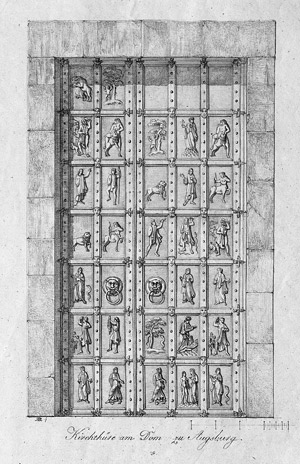 Kirchthüre am Dom zu Augsburg.